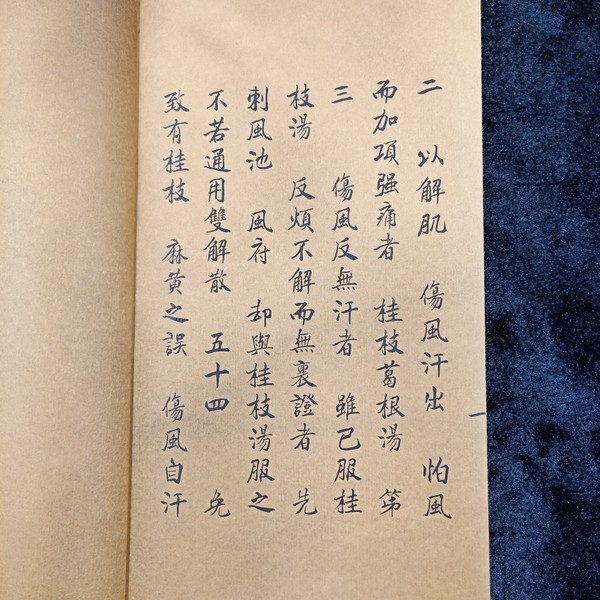 二 以解肌 傷風汗出 怕風
而加項强痛者 桂枝葛根湯 第
三 傷風反無汗者 雖已服桂
枝湯 反煩不解而無裏證者 先
刺風池 風府 却與桂枝湯服之
不若通用雙解散 五十四 免
致有桂枝 麻黄之誤 傷風自汗